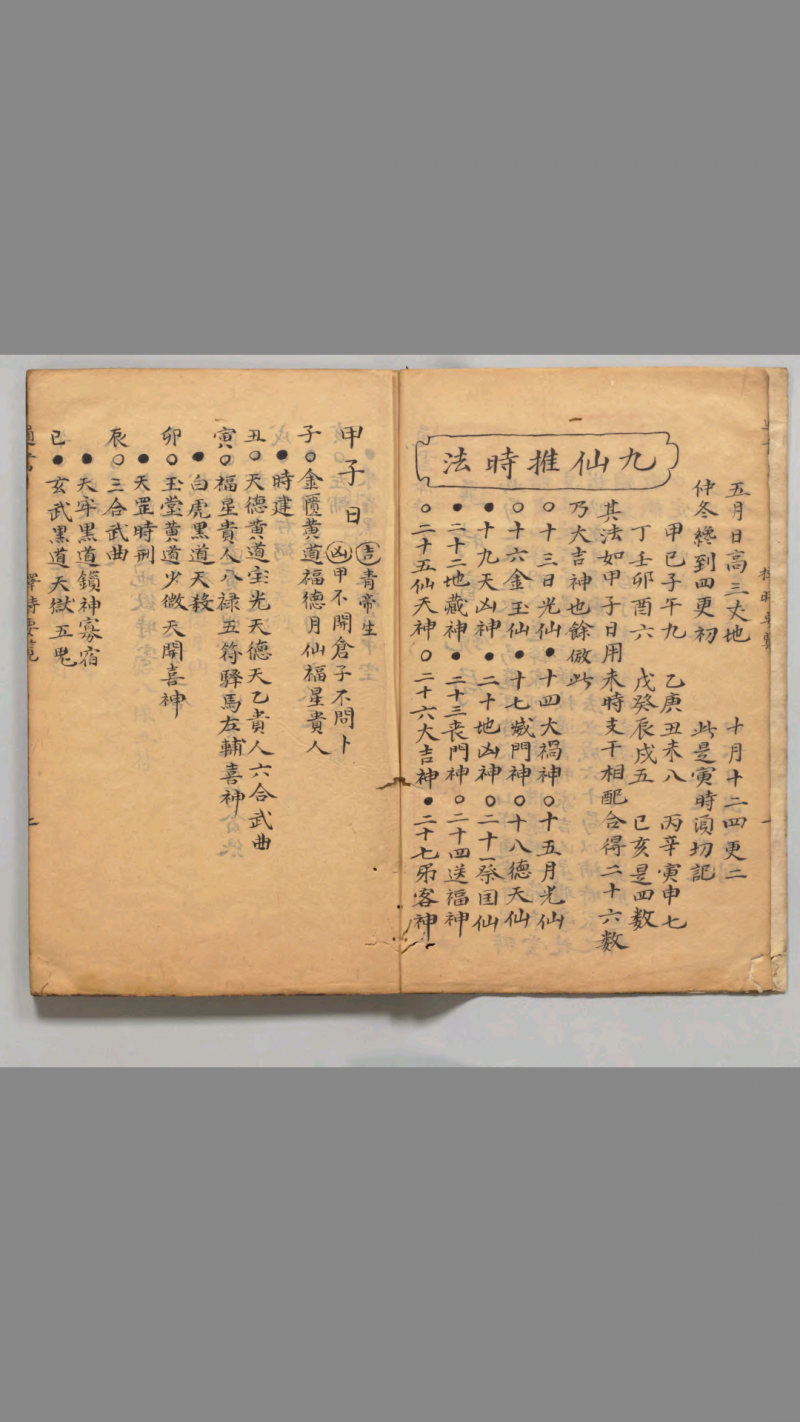 五月日高三丈地　十月十二四更二
仲冬纔到四更初　此是寅時須切記
九仙推時法
甲己子午九　乙庚丑未八　丙辛寅申七
丁壬卯酉六　戊癸辰戌五　巳亥是四數
其法如甲子日用未時支干相配合得二十六數
乃大吉神也餘倣此
○十三日光仙●十四大禍神○十五月光仙
○十六金玉仙●十七災門神○十八德天仙
●十九天凶神●二十地凶神○二十一祭国仙
●二十二地藏神●二十三丧門神○二十四送福神
○二十五仙天神○二十六大吉神●二十七吊客神
吉青帝生
甲子日
凶甲不開倉子不問卜
子○金匱黄道福德月仙福星貴人
●時建
丑○天德黄道宝光天德天乙貴人六合武曲
寅○福星貴人八禄五符驛馬左輔喜神
●白虎黒道天殺
卯○玉堂黄道少微天開喜神
●天罡時刑
辰○三合武曲
●天牢黒道鎖神寡宿
巳●玄武黒道天獄五鬼